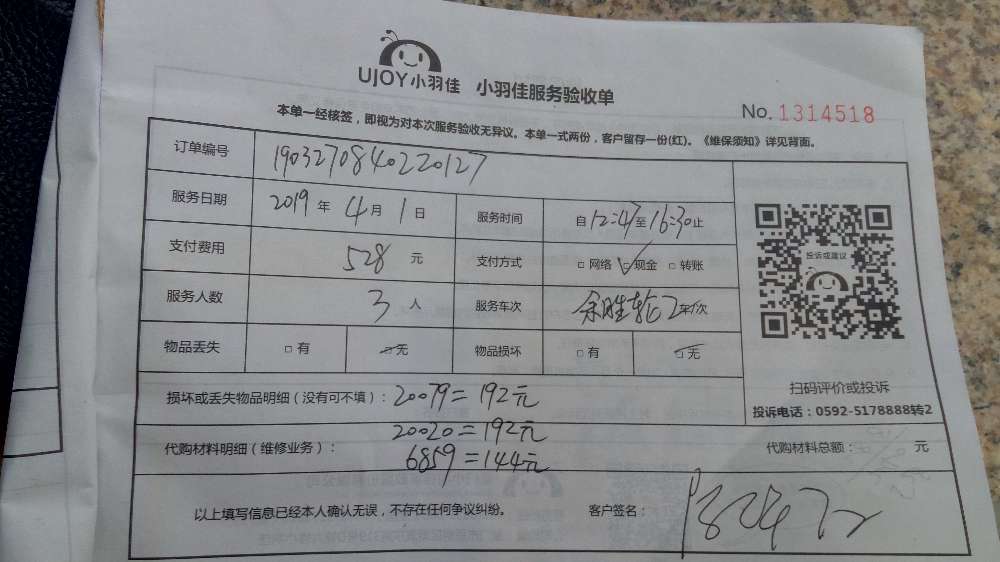 UJOY小羽佳 小羽佳服务验收单
No. 1314518
本单一经核签，即视为对本次服务验收无异议。本单一式两份，客户留存一份(红)。《维保须知》详见背面。
订单编号 1903270840220127
服务日期 2019 年 4 月 1 日 服务时间 自 12:47 至 16:30 止
支付费用 528 元 支付方式 □ 网络 ☑ 现金 □ 转账
服务人数 3 人 服务车次 余胜轮 2 车/次
物品丢失 □ 有 ☑ 无 物品损坏 □ 有 ☑ 无
投诉或建议
扫码评价或投诉
投诉电话：0592-5178888转2
损坏或丢失物品明细（没有可不填）： 20079=192元
20020=192元
代购材料明细（维修业务）： 6859=144元
代购材料总额： 元
以上填写信息已经本人确认无误，不存在任何争议纠纷。 客户签名：